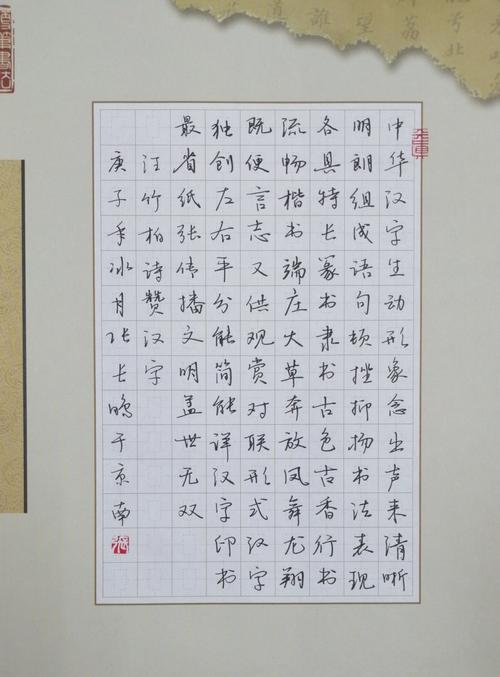 中华汉字生动形象念出声来清晰
明朗组成语句顿挫抑扬书法表现
各具特长篆书隶书古色古香行书
流畅楷书端庄大草奔放凤舞龙翔
既便言志又供观赏对联形式汉字
独创左右平分能简能详汉字印书
最省纸张传播文明盖世无双
汪竹柏诗赞汉字
庚子年冰月张长鸣于京南